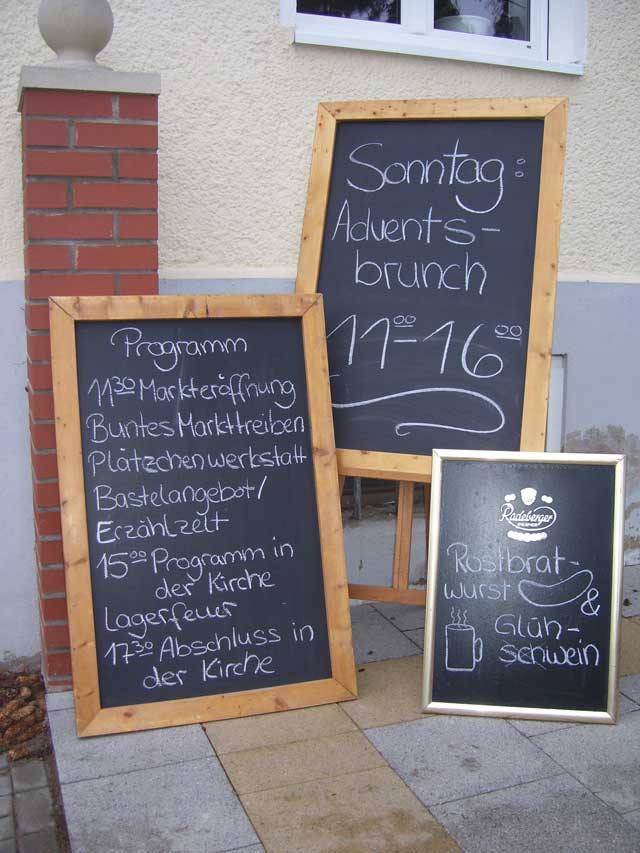 Sonntag:
Advents-
brunch
11⁰⁰-16⁰⁰
Programm
11³⁰ Markteröffnung
Buntes Markttreiben
Plätzchenwerkstatt
Bastelangebot/
Erzählzelt
15⁰⁰ Programm in
der Kirche
Lagerfeuer
17³⁰ Abschluss in
der Kirche
Radeberger
Rostbrat-
wurst
&
Glüh-
schwein